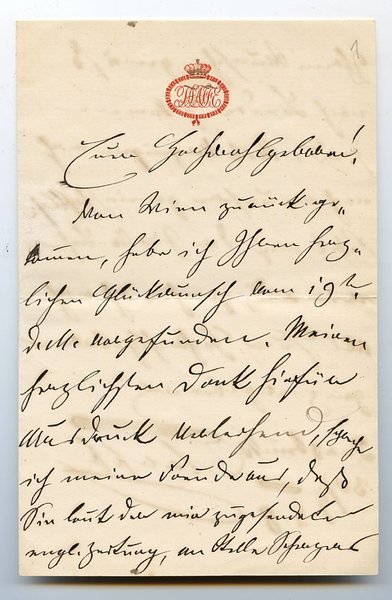 1
Euer Hochwohlgeboren!
Von Wien zurück ge-
kommen, habe ich Ihren herz-
lichen Glückwunsch vom 19ten
vorgefunden. Meinen
herzlichsten Dank hiefür
Ausdruck verleihend, spreche
ich meine Freude aus, daß
Sie laut der mir zugesendeten
engl. Zeitung, an Stelle